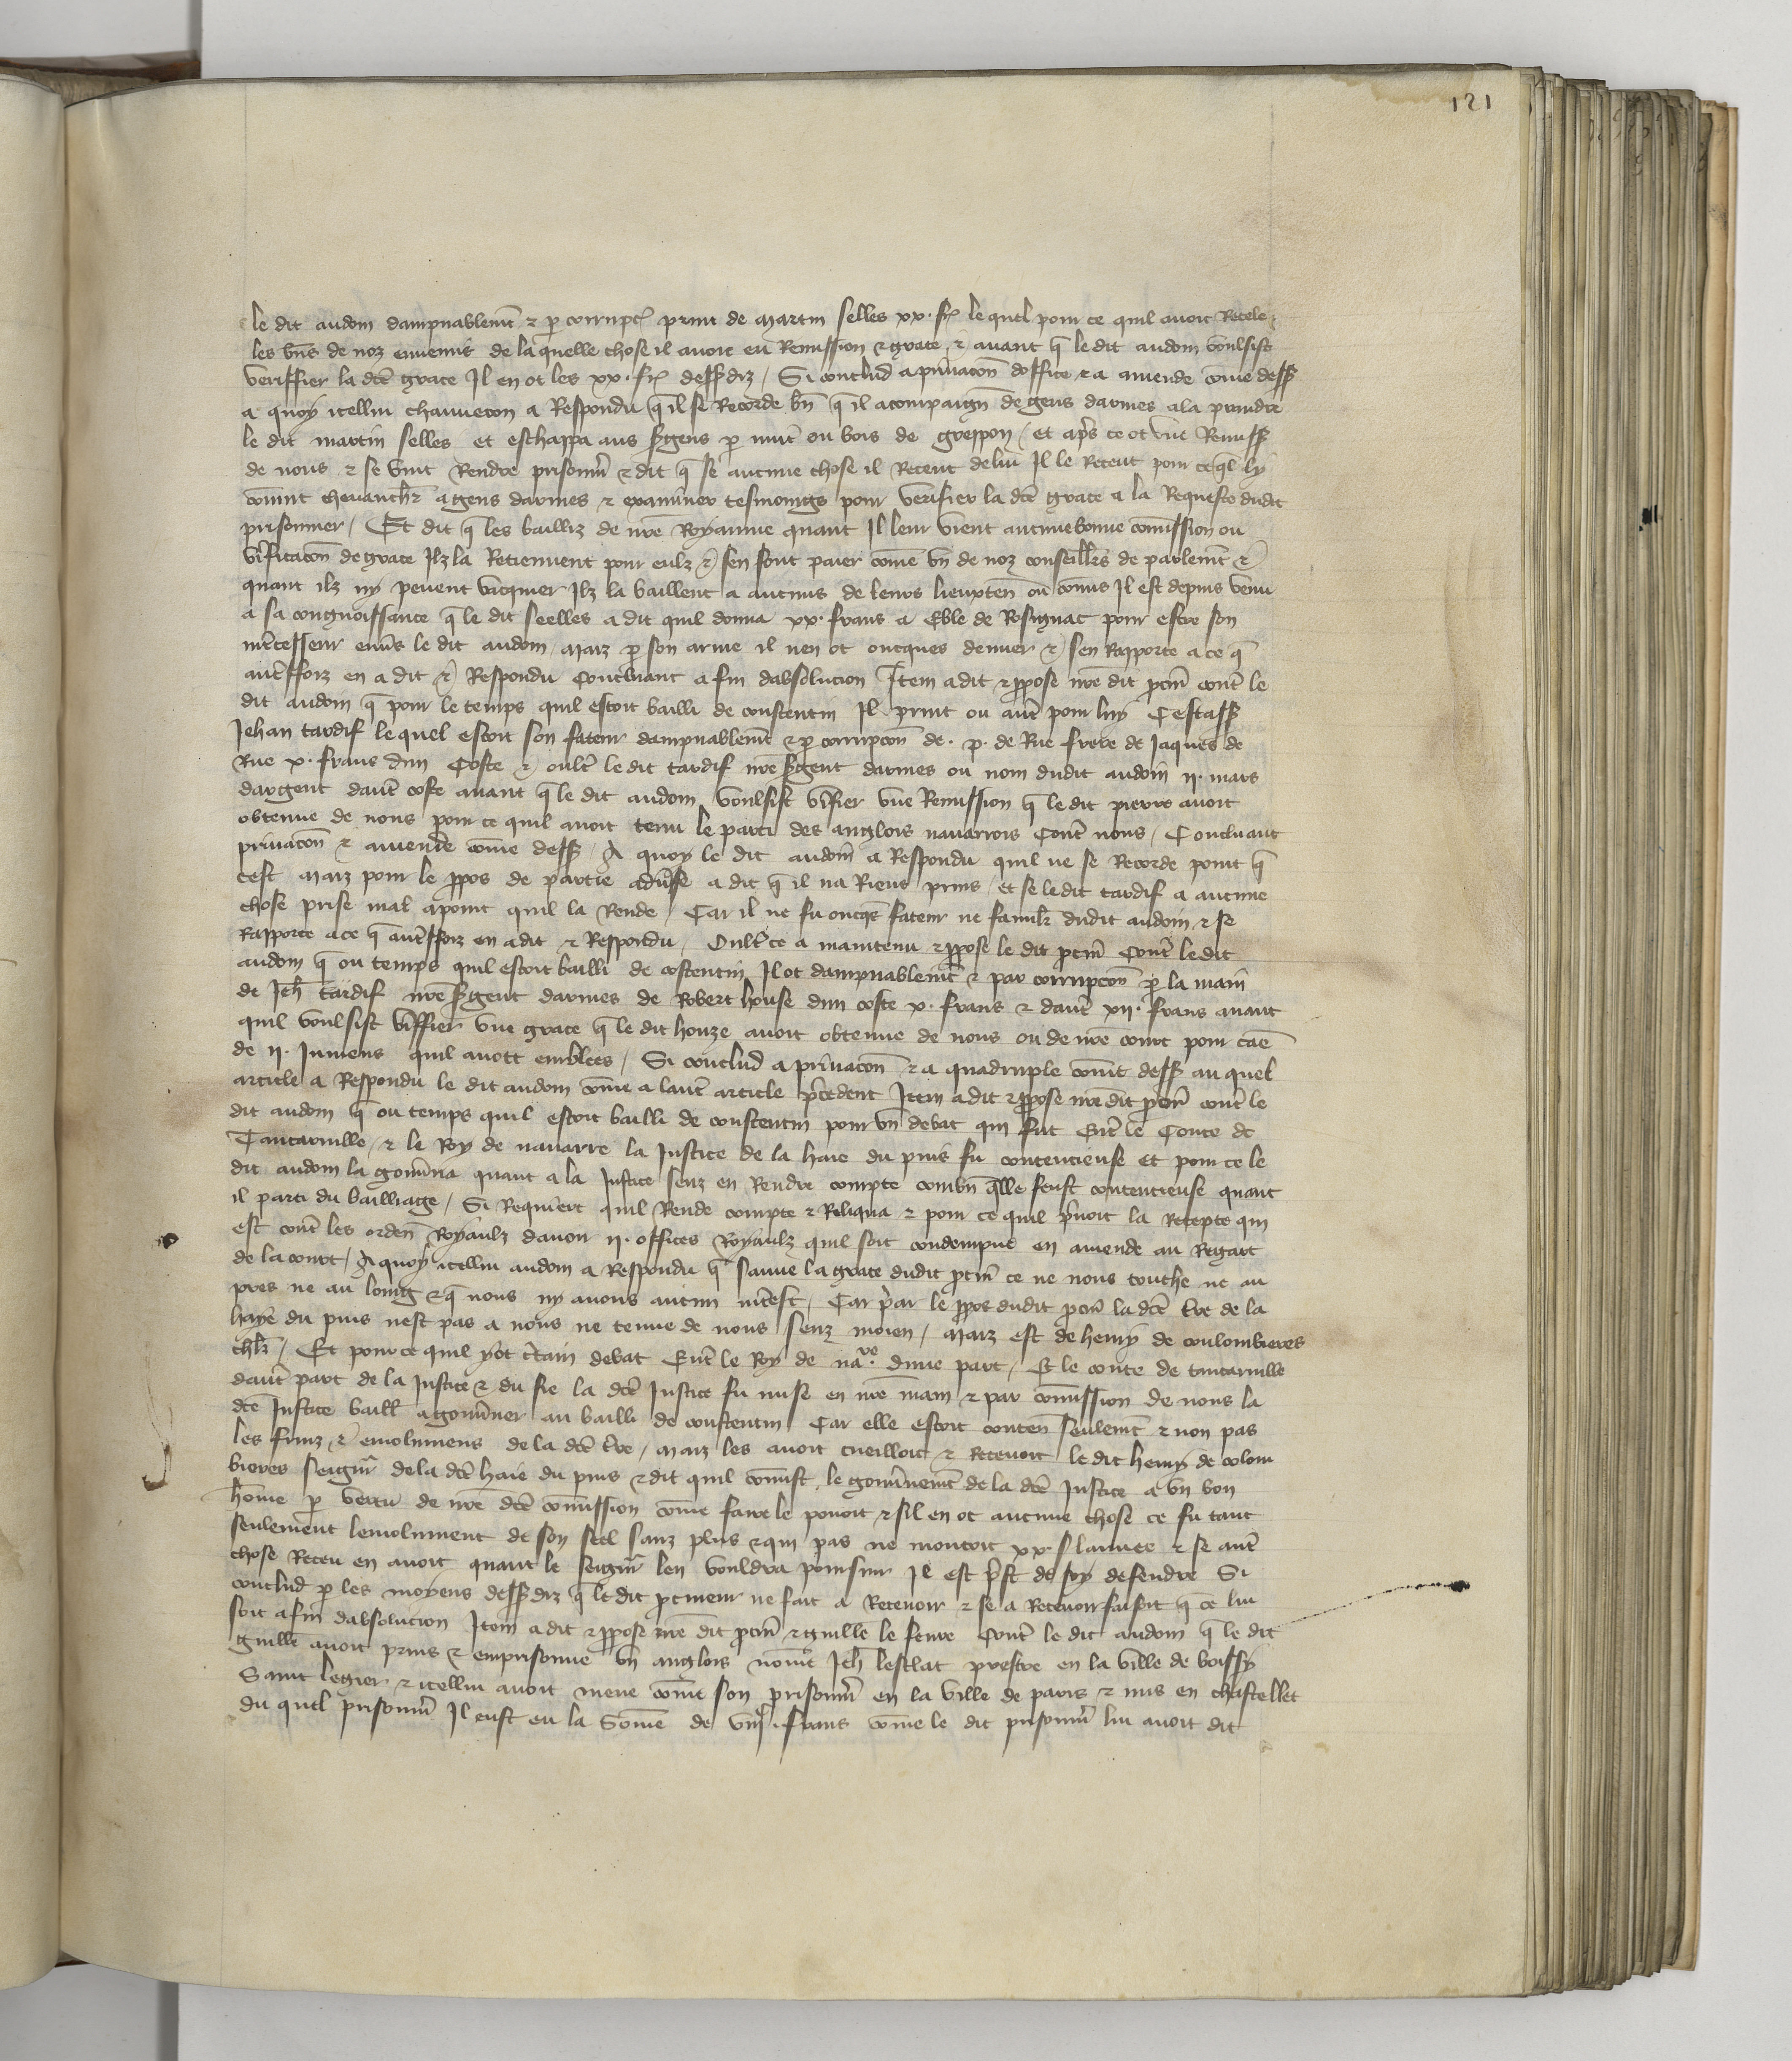 121
le dit audoin dampnablemt̃ ⁊ ꝑ corrupcõ print de martin selles xx. frˢ le quel pour ce quil avoit Recele
les biẽs de noz ennemis de la quelle chose il avoit eu Remission ⁊ grace ⁊ avant q̃ le dit audoin voulsist
veriffier la dc̃e grace Il en ot les xx. frˢ dessˢdiz / Si conclud a privacoñ doffice ⁊ a amende com̃e dessˢ
a quoy icellui chauveron a Respondu q̃ il se Recorde bñ q̃ il acompaigñ de gens darmes ala prendre
le dit martin selles et eschappa aus sˀgens ꝑ nuit ou bois de greppon / et apˀs ce ot une Remissˢ
de nous ⁊ se vint Rendre prisonnˀ ⁊ dit q̃ se aucune chose il Receut de lui Il le Receut pour ce ql̃ ly
convint chevauchˀ a gens darmes ⁊ examiner tesmoings pour verifier la dc̃e grace a la Requeste dudit
prisonnier / Et dit q̃ les bailliz de nr̃e Royaume quant Il leur vient aucune bonne com̃ission ou
vˀificacoñ de grace Ilz la Retiennent pour eulz ⁊ sen font paier com̃e un de noz conseillˀs de parlemt̃ ⁊
quant ilz ny pevent vacquier Ilz la baillent a aucuns de leurs lieuxteñ ou com̃is Il est depuis venu
a sa congnoissance q̃ le dit seelles a dit quil donna xx. frans a Eble de Rosignac pour estre son
intˀcesseur envˀs le dit audoin / maiz ꝑ son arme il nen ot oncques denier ⁊ sen Rapporte a ce q̃
autˀffoiz en a dit ⁊ Respondu concluant a fin dabsolucion Item a dit ⁊ ꝓpose nr̃e dit ꝓcũr contˀ le
dit audoin q̃ pour le temps quil estoit bailli de constentin Il print ou autˀ pour luy Cestassˢ
Jehan tardif le quel estoit son fateur dampnablemt̃ ⁊ ꝑ corrupcoñ de . p. de Rue frere de Jaques de
Rue x. frans dun Coste ⁊ oultˀ le dit tardif nr̃e sˀgent darmes ou nom dudit audoin II. mars
dargent dautˀ coste avant q̃ le dit audoin voulsist vˀifier une Remission q̃ le dit pierre avoit
obtenue de nous pour ce quil avoit tenu le parti des anglois navarrois Contˀ nous / Concluant
privacoñ ⁊ amende com̃e dessˢ / A quoy le dit audoin a Respondu quil ne se Recorde point q̃
cest maiz pour le ꝓpos de partie advˀse a dit q̃ il na Riens prins / et se le dit tardif a aucune
chose prise mal apoint quil la Rende / Car il ne fu oncq̃s fateur ne familˀ dudit audoin ⁊ se
Rapporte a ce q̃ autˀffoiz en a dit ⁊ Respondu / Oultˀ ce a maintenu ⁊ ꝓpose le dit ꝓcũr Contˀ le dit
audoin q̃ ou temps quil estoit bailli de costentin Il ot dampnablemt̃ ⁊ par corrupcoñ ꝑ la main
de Jeh̃ tardif nr̃e sˀgent darmes de Robert house dun coste x. frans ⁊ dautˀ xii. frans avant
quil voulsist vˀiffier une grace q̃ le dit houze avoit obtenue de nous ou de nr̃e court pour cãe
de II. Jumens quil avoit emblees / Si conclud a privacoñ ⁊ a quadruple com̃t dessˢ au quel
article a Respondu le dit audoin com̃e a lautˀ article pˀcedent Item a dit ⁊ ꝓpose nr̃e dit ꝓcũr contˀ le
dit audoin q̃ ou temps quil estoit bailli de constentin pour un debat qui fut Entˀ le Conte de
Tancarville / ⁊ le Roy de navarre la Justice de la haie du puis fu contencieuse Et pour ce le
dit audoin la govˀna quant a la Justice senz en Rendre compte combñ q̃lle feust contencieuse quant
il parti du bailliage / Si Requiert quil Rende compte ⁊ Reliqua ⁊ pour ce quil pˀnoit la Recepte qui
est contˀ les ordeñ Royaulz davoir II. offices Royaulz quil soit condempne en amende au Regart
de la court / A quoy icellui audoin a Respondu q̃ sauve la grace dudit ꝓcũr ce ne nous touche ne au
pres ne au loing ⁊ q̃ nous ny avons aucun intˀest / Car pˀar le ꝓpos dudit ꝓcũr la dc̃e tˀre de la
haye du puis nest pas a nous ne tenue de nous senz moien / maiz est de henry de coulombieres
chl̃r / Et pour ce quil y ot cˀtain debat Entˀ le Roy de na.ʳᵉ dune part / Et le conte de tancarville
dautˀ part de la Justice ⁊ du fie la dc̃e Justice fu mise en nr̃e main ⁊ par com̃ission de nous la
dc̃e Justice baill̃ a govˀner au bailli de constentin Car elle estoit conteñ seulemt̃ ⁊ non pas
les fruiz ⁊ emolumens de la dc̃e tˀre / maiz les avoit cueilloit ⁊ Recevoit le dit henry de colom
bieres seignˀ de la dc̃e haie du puis ⁊ dit quil com̃ist le govˀnemt̃ de la dc̃e Justice a un bon
hom̃e ꝑ vertu de nr̃e dc̃e com̃ission com̃e faire le povoit ⁊ sil en ot aucune chose ce fu tant
seulement lemolument de son seel sanz plus ⁊ qui pas ne montoit xx. s lannee ⁊ se autˀ
chose Receu en avoit quant le seignˀ len vouldra poursuir Il est pˀst de soy defendre Si
conclud ꝑ les moyens dessˢdiz q̃ le dit ꝓcureur ne fait a Recevoir ⁊ se a Recevoir faisoit q̃ ce lui
soit a fin dabsolucion Item a dit ⁊ ꝓpose nr̃e dit ꝓcũr ⁊ guill̃e le fevre Contˀ le dit audoin q̃ le dit
guill̃e avoit prins ⁊ emprisonne un anglois nom̃e Jeh̃ lesclat prestre en la ville de boissy
Saint legier ⁊ icellui avoit mene com̃t son prisonnˀ en la ville de paris ⁊ mis en chastellet
du quel prisonnˀ Il eust eu la Som̃e de frans com̃e le dit prisonnˀ lui avoit dit